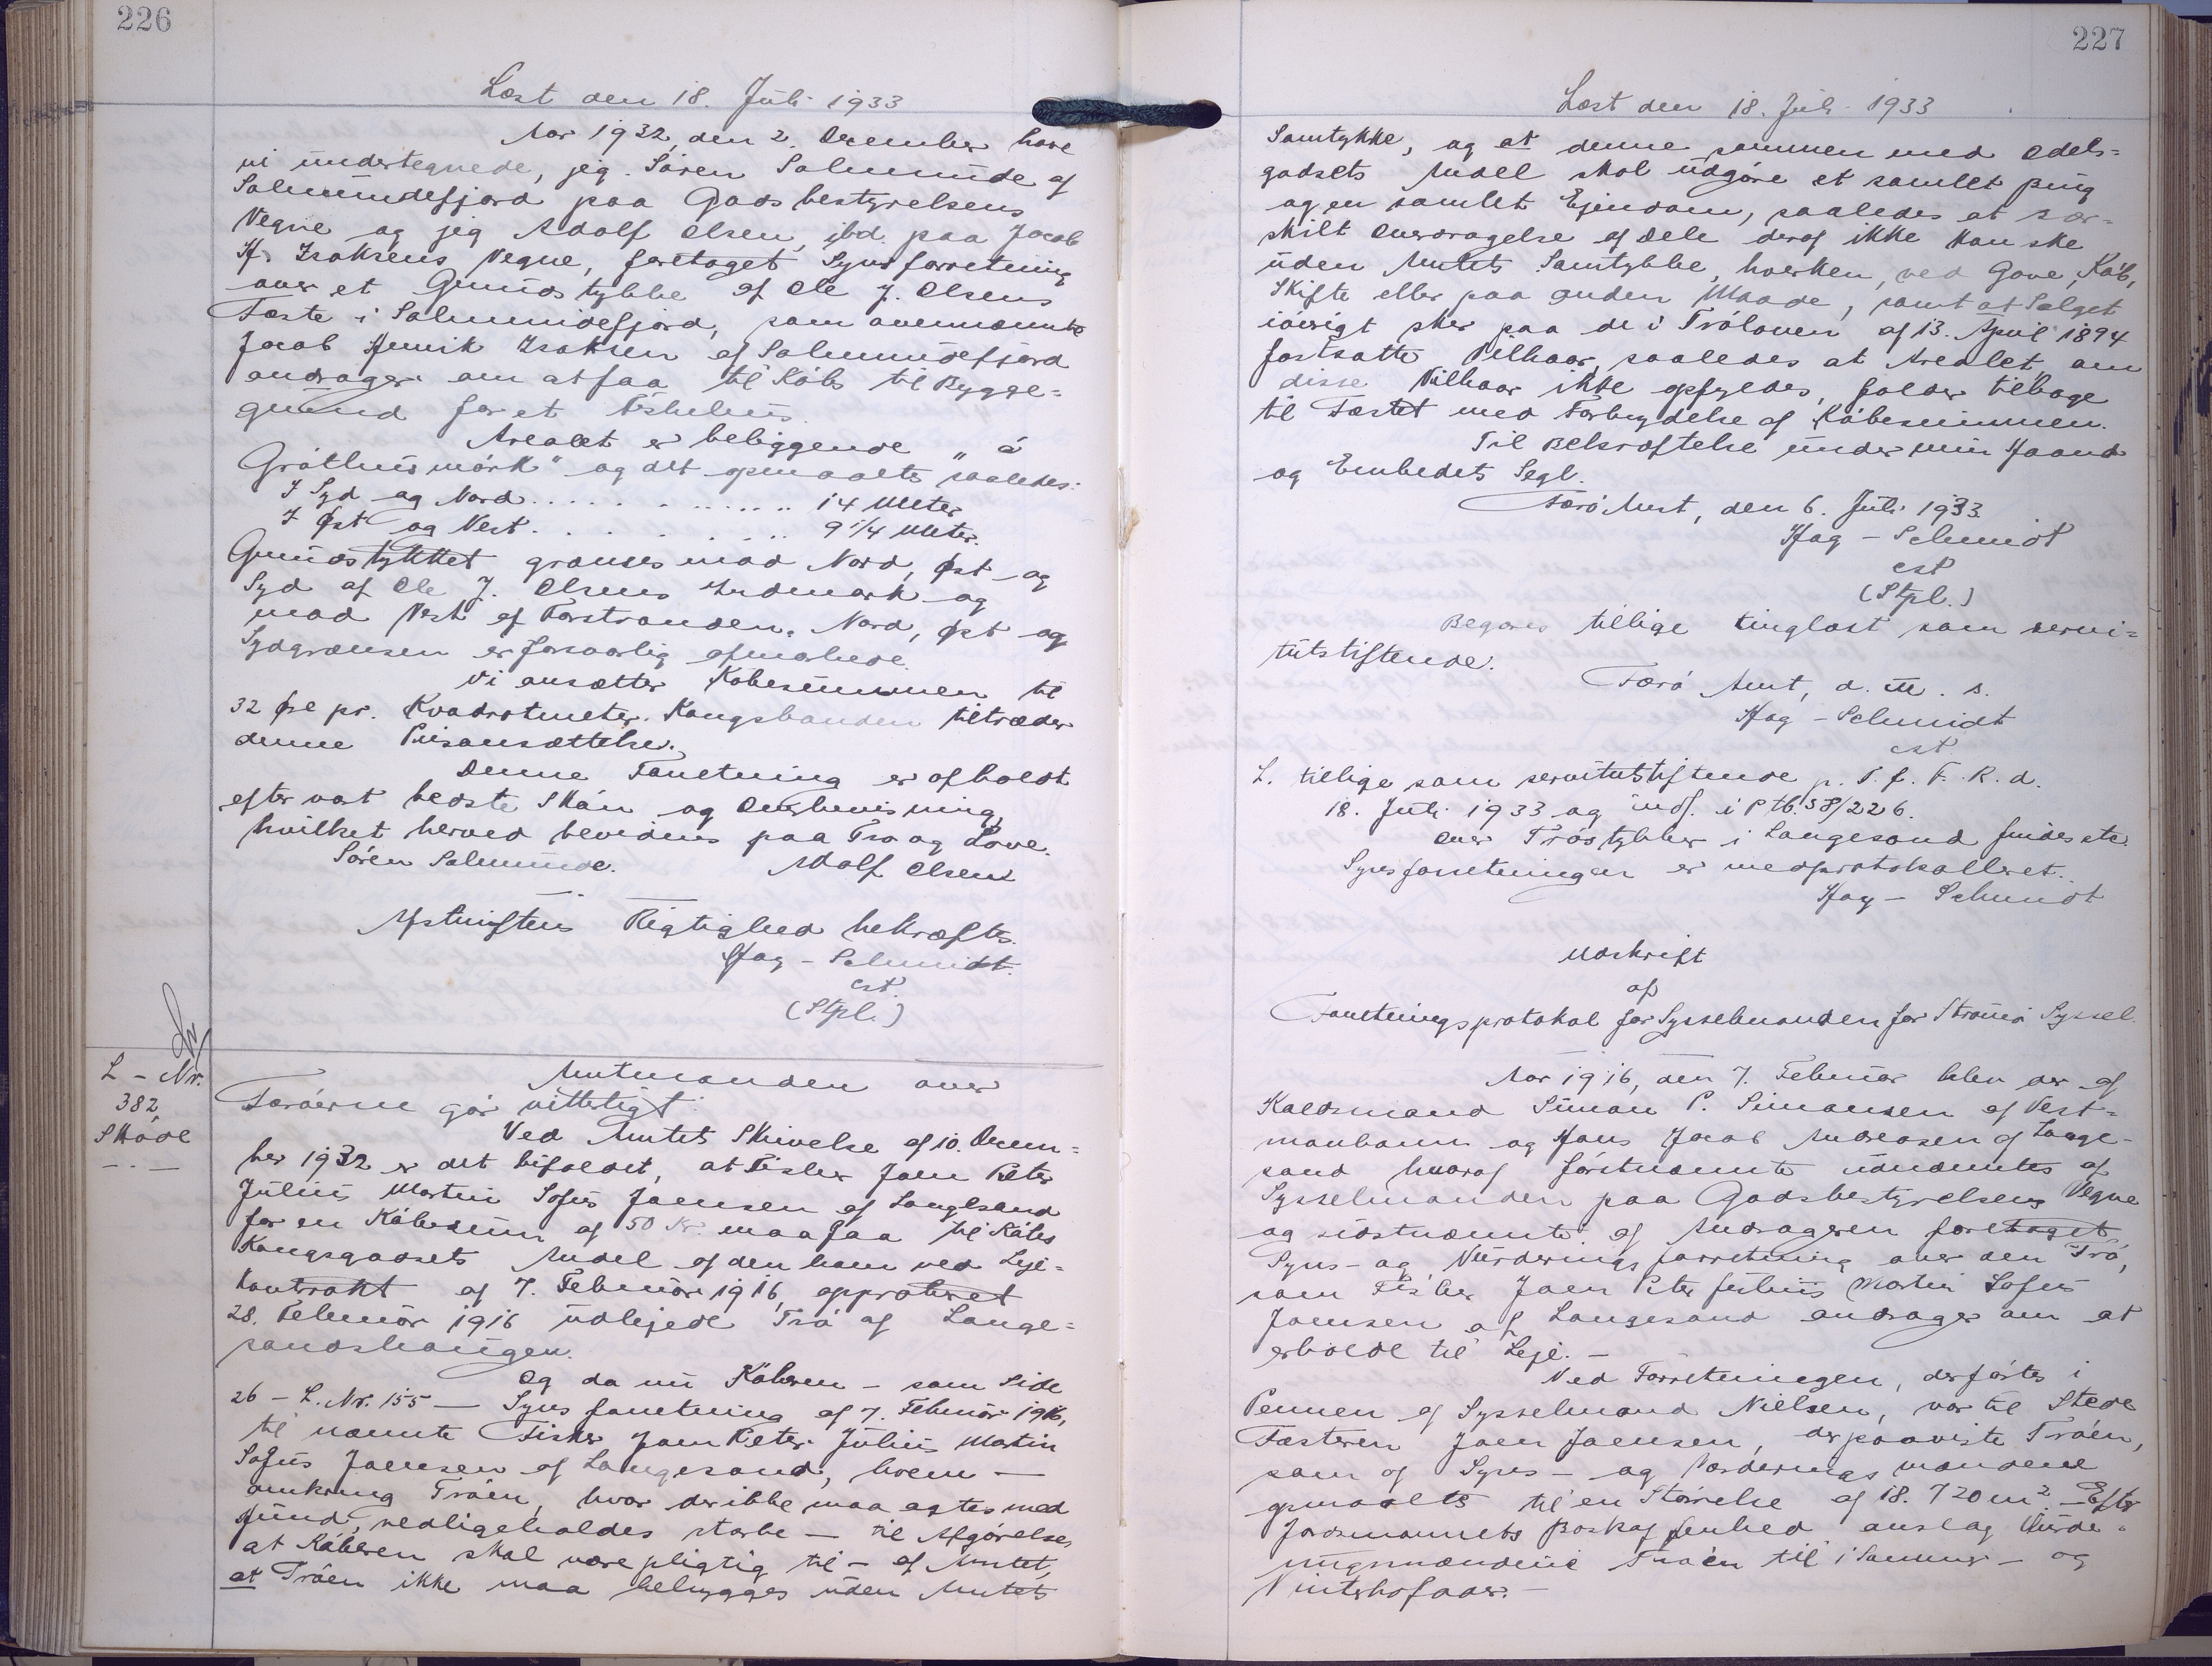 226
Læst den 18. Juli 1933
Aar 1932, den 2. December have
vi undertegnede, jeg Sören Salmunde af
Salmundefjord paa Godsbestyrelsens
Vegne og jeg Adolf Olsen, ibd. paa Jacob
H. Isaksens Vegne, foretaget Synsforretning
over et Grundstykke af Ole J. Olsens
Fæste i Salmundefjord, som ovennævnte
Jacob Henrik Isaksen af Salmundefjord
andrager om at faa til Købs til Bygge=
grund for et Fiskehus.
Arealet er beliggende „á
Gróthusmørk" og det opmaaltes saaledes:
I Syd og Nord . . . . . . . . . . . 14 Meter
I Øst og Vest . . . . . . . . . . 9 1/4 Meter.
Grundstykket grænses mod Nord, Øst og
Syd af Ole J. Olsens Indmark og
mod Vest af Forstranden. Nord, Øst og
Sydgrænsen er forsvarlig afmærkede.
Vi ansætter Købesummen til
32 Øre pr. Kvadratmeter. Kongsbonden tiltræder
denne Prisansættelse.
Denne Forretning er afholdt
efter vort bedste Skøn og Overbevisning,
hvilket herved bevidnes paa Tro og Love.
Sören Salmunde. Adolf Olsen
Afskriftens Rigtighed bekræftes.
Hag-Schmidt.
cst.
(Stpl.)
L-Nr.
382
Skøde
Amtmanden over
Færøerne gør vitterligt:
Ved Amtets Skrivelse af 10. Decem=
ber 1932 er det bifaldet, at Fisker Joen Peter
Julius Martin Sofus Joensen af Langesand
for en Købesum af 50 Kr. maa faa til Købs
Kongsgodsets Andel af den ham ved Leje=
kontrakt af 7. Februar 1916, approberet
28. Februar 1916 udlejede Trø af Lange=
sandshaugen.
Og da nu Køberen - som Side
26 - L. Nr. 155 - Synsforretning af 7. Februar 1916,
til nævnte Fisker Joen Peter Julius Martin
Sofus Joensen af Langesand, hvem -
omkring Trøen, hvor der ikke maa agtes med
Hund, vedligeholdes stærke - til Afgørelse,
at Køberen skal være pligtig til - af Amtet,
at Trøen ikke maa bebygges uden Amtets
227
Læst den 18. Juli 1933
Samtykke, og at denne sammen med Odels=
godsets Andel skal udgøre et samlet Brug
og en samlet Ejendom, saaledes at sær=
skilt Overdragelse af Dele deraf ikke kan ske
uden Amtets Samtykke, hverken ved Gave, Køb,
Skifte eller paa anden Maade, samt at Salget
iøvrigt sker paa de i Trøloven af 13. April 1894
fastsatte Vilkaar, saaledes at Arealet, om
disse Vilkaar ikke opfyldes, falder tilbage
til Fæstet med Forbrydelse af Købesummen.
Til Bekræftelse under min Haand
og Embedets Segl.
Færø Amt, den 6. Juli 1933
Hag-Schmidt
cst
(Stpl.)
Begæres tillige tinglæst som servi=
tutstiftende.
Færø Amt, d. u. s.
Hag-Schmidt
cst.
L. tillige som servitutstiftende p. T. f. F. R. d.
18. Juli 1933 og indf. i Ptb. S 8/226.
Over Trøstykker i Langesand findes etc.
Synsforretningen er medprotokolleret.
Hag-Schmidt
Udskrift
af
Forretningsprotokol for Sysselmanden for Strømø Syssel.
Aar 1916, den 7. Februar blev der af
Kaldsmand Simon P. Simonsen af Vest=
manhavn og Hans Jacob Andreasen af Lange-
sand hvoraf førstnævnte udnævntes af
Sysselmanden paa Godsbestyrelsens Vegne
og sidstnævnte af Andrageren foretaget
Syns- og Vurderingsforretning over den Trø,
som Fisker Joen Peter Julius Martin Sofus
Joensen af Langesand andrager om at
erholde til Leje. -
Ved Forretningen, der førtes i
Pennen af Sysselmand Nielsen, var til Stede
Fæsteren Joen Joensen, der paaviste Trøen,
som af Syns- og Vurderingsmændene
opmaaltes til en Størrelse af 18.720 m². - Efter
Jordsmonnets Beskaffenhed anslog Vurde=
ringsmændene Trøen til 1 Sommer- og
Vinterhofoder. -